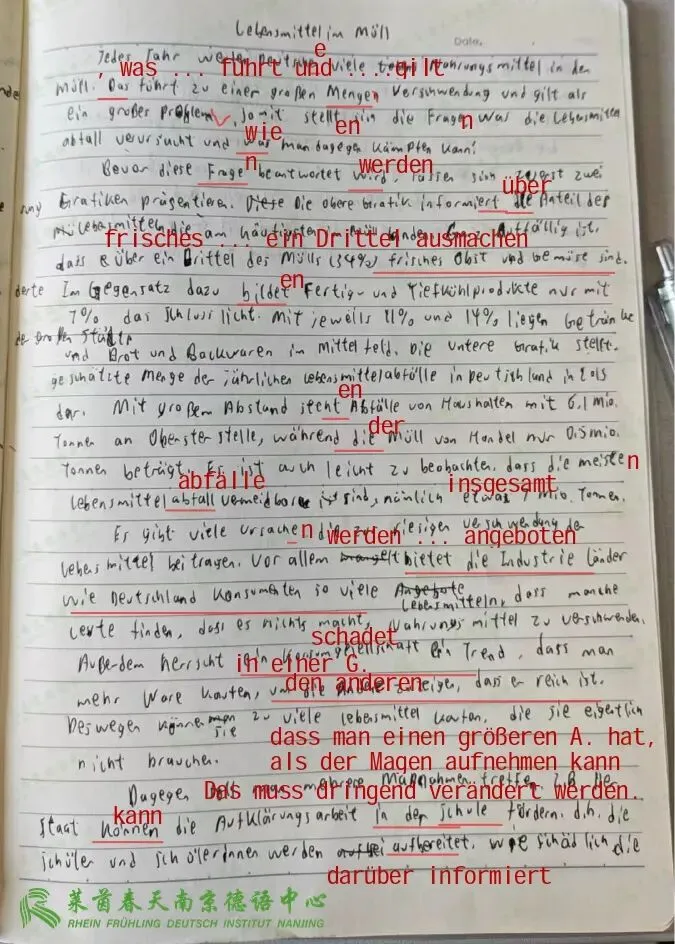 Lebensmittel im Müll
Date.
Jedes Jahr werden Deutsche viele Nahrungsmittel in den
e
, was ... führt und ....gilt
Müll. Das führt zu einer großen Mengen Verschwendung und gilt als
ein großer Problem, somit stellt sich die Fragen was die Lebensmittel
n
wie en
abfall verursacht und was man dagegen kämpfen kann?
n werden
Bevor diese Frage beantwortet wird, lassen sich zuerst zwei
über
Grafiken präsentieren. Diese Die obere Grafik informiert die Anteil der
Lebensmitteln die am häufigsten im Müll landen. auffällig ist,
frisches ... ein Drittel ausmachen
dass über ein Drittel des Mülls (34%) frisches Obst und Gemüse sind.
en
Im Gegensatz dazu bildet Fertig- und Tiefkühlprodukte nur mit
7% das Schlusslicht. Mit jeweils 11% und 14% liegen Getränke
und Brot und Backwaren im Mittelfeld. Die untere Grafik stellt
geschätzte Menge der jährlichen Lebensmittelabfälle in Deutschland in 2015
en
dar. Mit großem Abstand steht Abfälle von Haushalten mit 6.1 mio.
der
Tonnen an Oberster stelle, während die Müll von Handel nur 0.5 mio.
Tonnen beträgt. Es ist auch leicht zu beobachten, dass die meisten
n
abfälle insgesamt
Lebensmittelabfall vermeidbar sind, nämlich etwa 7 mio. Tonnen.
Es gibt viele ursache die zur riesigen verschwendung der
n werden ... angeboten
Lebensmittel beitragen. Vor allem bietet die Industrie länder
wie Deutschland Konsumenten so viele Angebote
Lebensmitteln, dass manche
Leute finden, dass es nichts macht, Nahrungsmittel zu verschwenden.
schadet
Außerdem herrscht ein Konsumgesellschaft ein Trend, dass man
in einer G.
den anderen
mehr Ware kaufen, um die Andere zu zeigen, dass er reich ist.
Deswegen können sie zu viele Lebensmittel kaufen, die sie eigentlich
dass man einen größeren A. hat,
nicht brauchen.
als der Magen aufnehmen kann
Das muss dringend verändert werden.
Dagegen soll man mehrere Maßnahmen treffen z.B. Der
kann
Staat können die Aufklärungsarbeit in der Schule fördern. d.h. die
Schüler und Schülerinnen werden aufbereitet, wie schädlich die
darüber informiert
莱茵春天南京德语中心
RHEIN FRÜHLING DEUTSCH INSTITUT NANJING